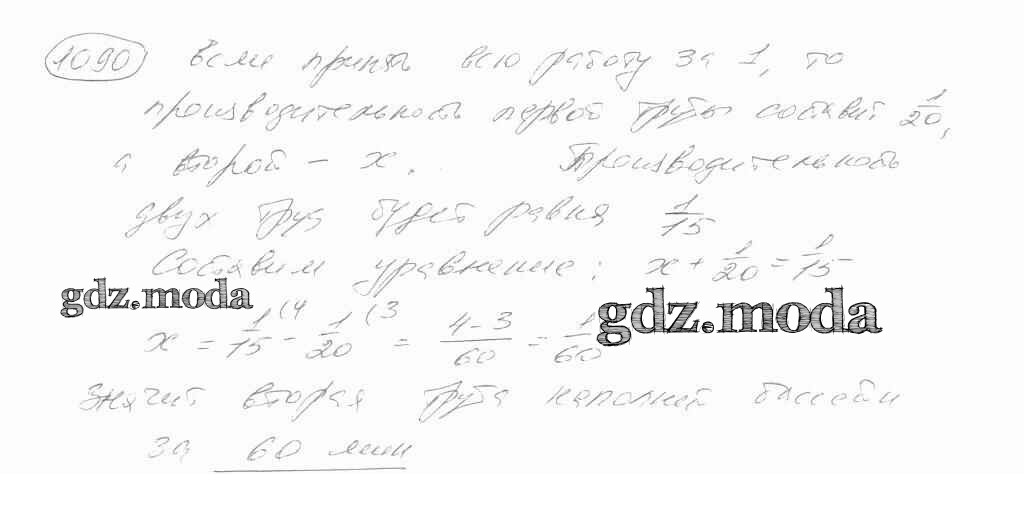 1090 Если принять всю работу за 1, то
производительность первой трубы составит 1/20,
а второй – x. Производительность
двух труб будет равна 1/15
Составим уравнение: x + 1/20 = 1/15
gdz.moda gdz.moda
x = 1/15 (4 - 1/20 (3 = 4-3/60 = 1/60
Значит вторая труба наполнит бассейн
за 60 мин